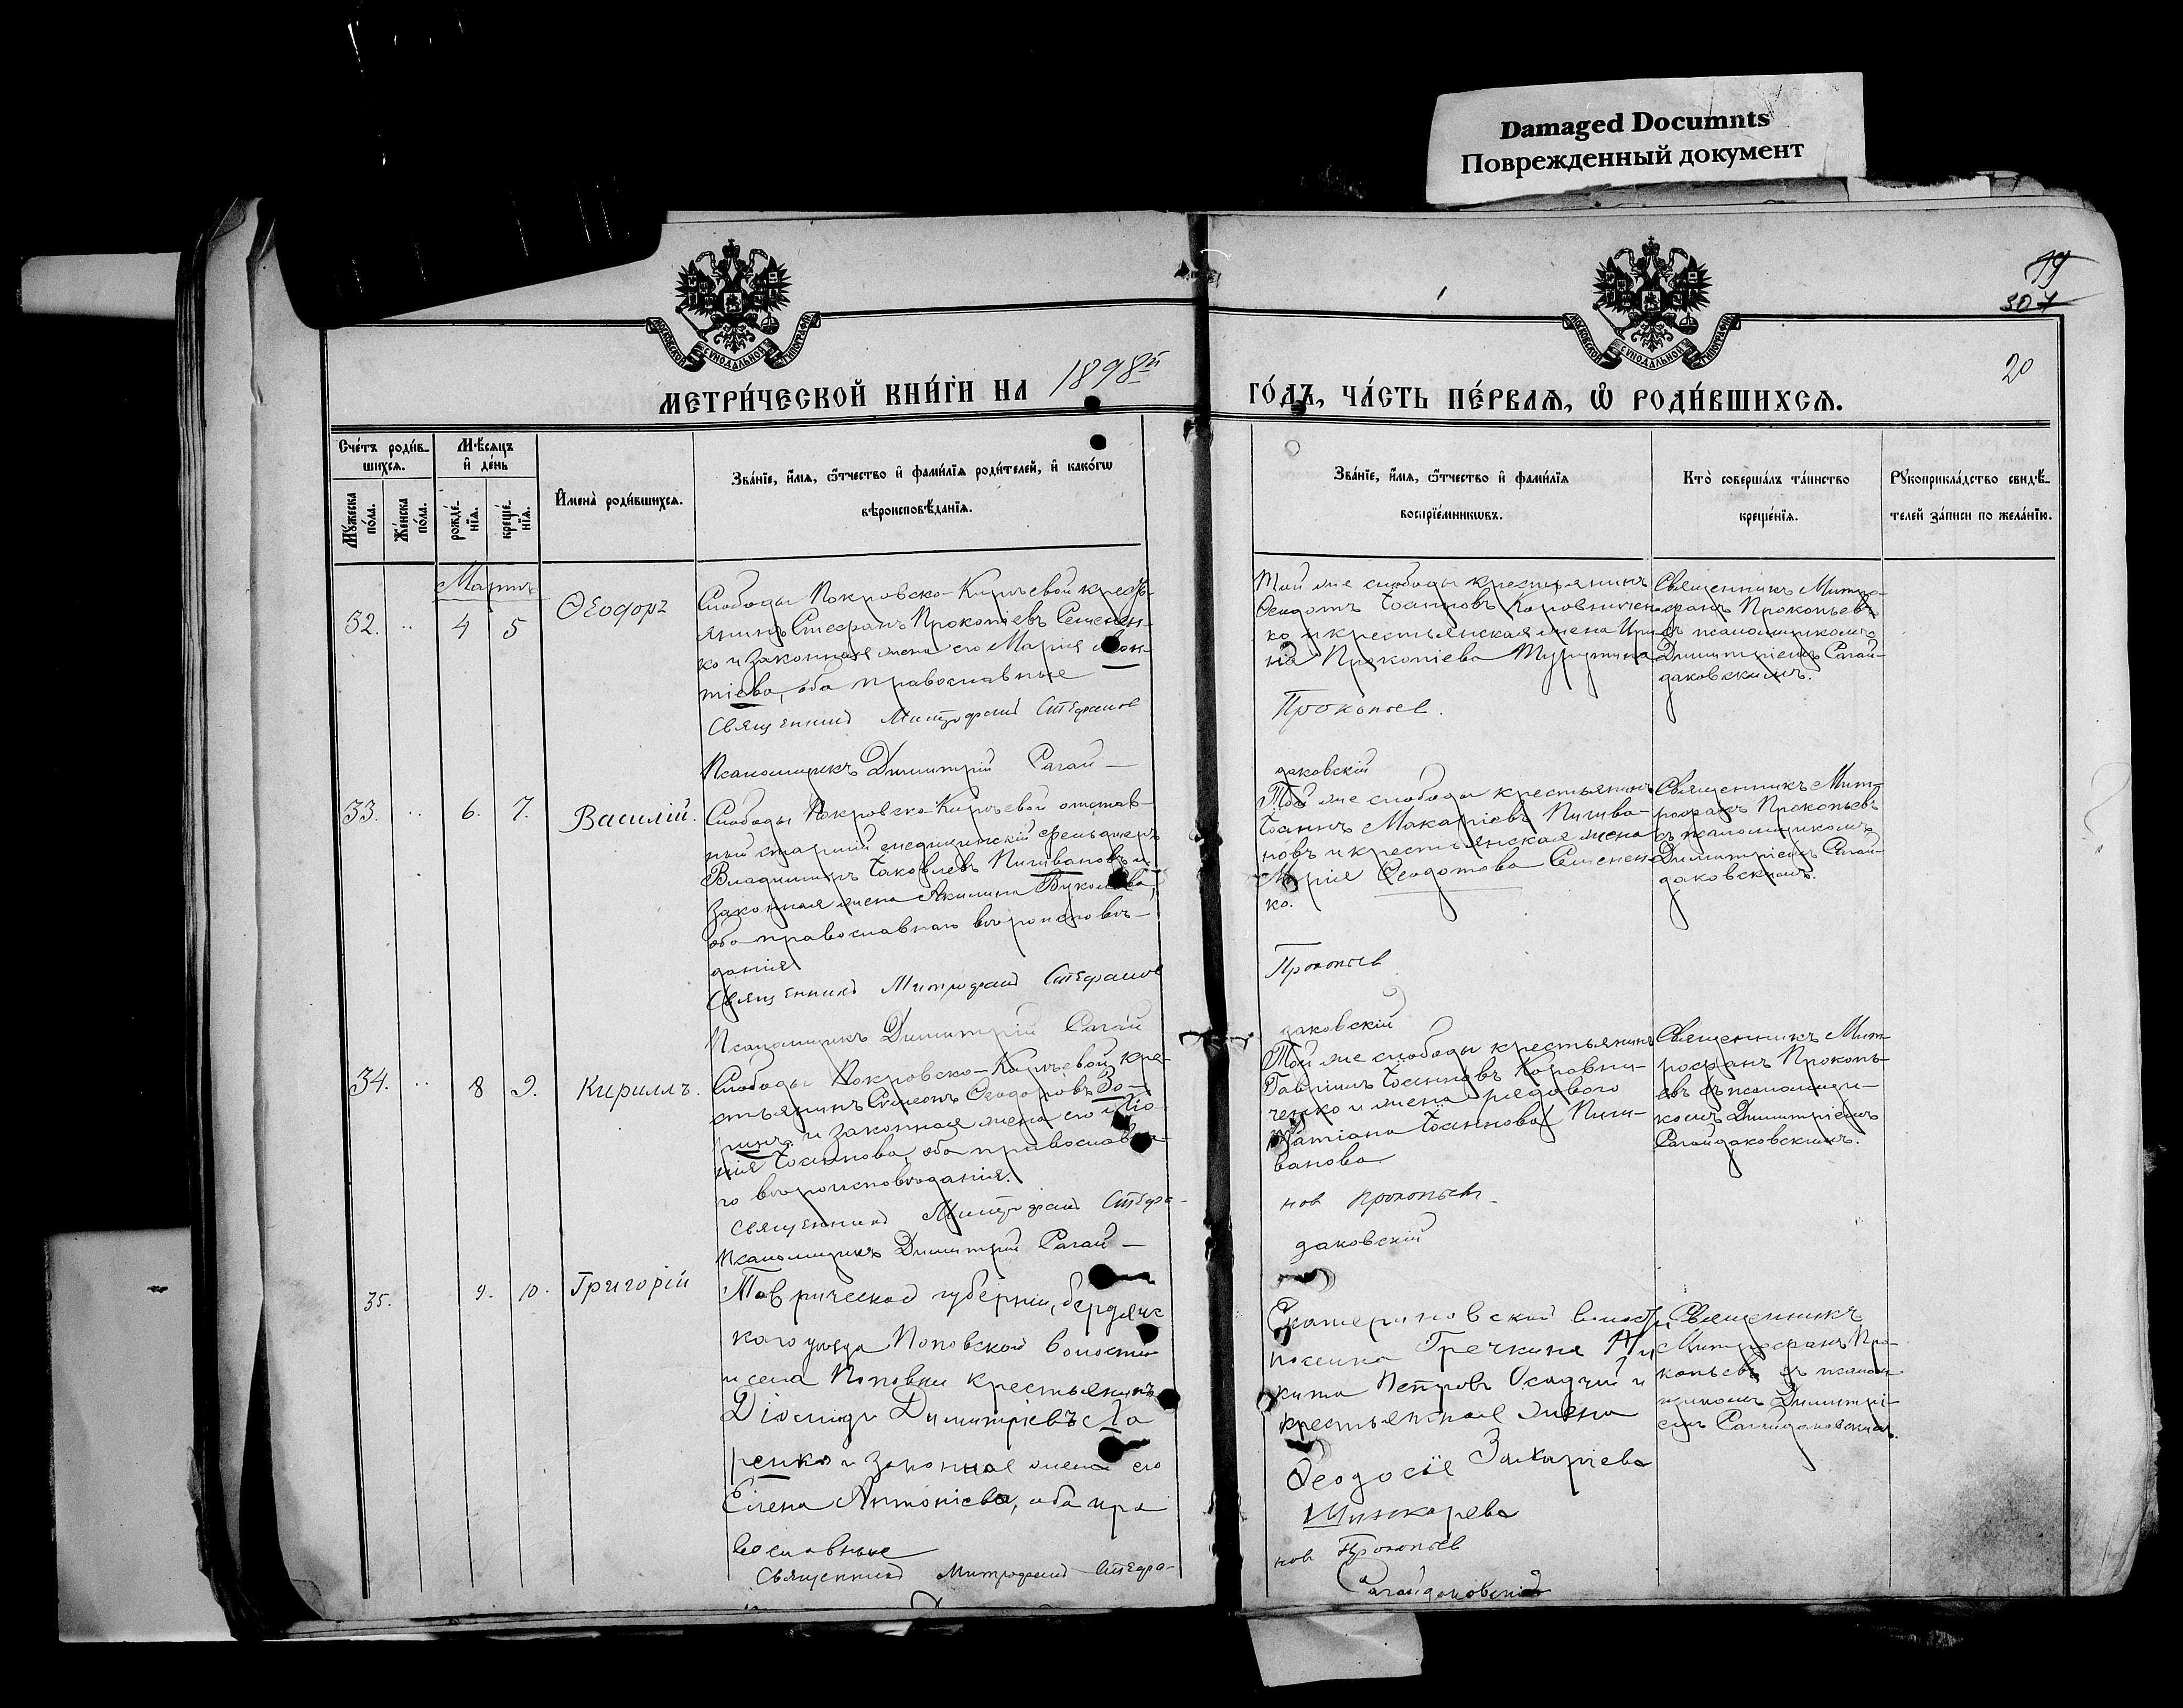 Damaged Documnts
Поврежденный документ
19
307
20
МОСКОВСКОЙ СѴНОДАЛЬНОЙ ТИПОГРАФІИ
МОСКОВСКОЙ СѴНОДАЛЬНОЙ ТИПОГРАФІИ
МЕТРИ́ЧЕСКОЙ КНИ́ГИ НА 1898й
ГО́ДЪ, ЧА́СТЬ ПЕ́РВАЯ, Ѡ҆ РОДИ́ВШИХСЯ.
Сче́тъ роди́в-
шихся.
Мꙋ́жеска по́ла.
Же́нска по́ла.
Мѣ́сяцъ и҆ де́нь
рожде́-нїя.
креще́-нїя.
И҆мена̀ роди́вшихся.
Зва́нїе, и҆́мя, ѻ҆́тчество и҆ фами́лїя роди́телей, и҆ како́гѡ
вѣроисповѣ́данїя.
Зва́нїе, и҆́мя, ѻ҆́тчество и҆ фами́лїя
воспрїе́мникѡвъ.
Кто̀ соверша́лъ та́инство
креще́нїя.
Рꙋкоприкла́дство свидѣ́-
телей за́писи по жела́нїю.
Мартъ
32. .. 4 5 Ѳеодоръ
Слободы Покровско-Кирѣевой кресть-
янинъ Стефанъ Прокопіевъ Семенен-
ко и законная жена его Марія Леон-
тіева, оба православные
Священникъ Митрофанъ Стефанов
Псаломщикъ Димитрій Сагай-
Той же слободы крестьянинъ
Ѳеодотъ Іоанновъ Коровничен-
ко и крестьянская жена Ири-
на Прокопіева
Прокопьев.
даковскій
Священникъ Митро-
фанъ Прокопьевъ
съ псаломщикомъ
Димитріемъ Сагай-
даковскимъ.
33. .. 6. 7. Василій.
Слободы Покровско-Кирѣевой отстав-
ной старшій медицинскій фельдшеръ
Владимиръ Іаковлевъ Пишвановъ и
законная жена Акилина Вуколова,
оба православнаго вѣроисповѣ-
данія
Священникъ Митрофанъ Стефанов
Псаломщикъ Димитрій Сагай
Той же слободы крестьянинъ
Іоаннъ Макаріевъ Пишва-
новъ и крестьянская жена
Марія Ѳеодотова Семенен-
ко.
Прокопьев
даковскій
Священникъ Мит-
рофанъ Прокопьевъ
съ псаломщикомъ
Димитріемъ Сагай-
даковскимъ.
34. .. 8 9. Кириллъ.
Слободы Покровско-Кирѣевой кре-
стьянинъ Симеонъ Ѳеодоровъ Зо-
ринъ и законная жена его
Іоаннова, оба православна-
го вѣроисповѣданія.
Священникъ Митрофанъ Стефа-
Псаломщикъ Димитрій Сагай-
Той же слободы крестьянинъ
Гавріилъ Іоанновъ Коровни-
ченко и жена рядового
Татіана Іоаннова Пиш-
ванова
нов Прокопьевъ
даковскій
Священникъ Мит-
рофанъ Прокопь-
евъ съ псаломщи-
комъ Димитріемъ
Сагайдаковскимъ.
35. 9. 10. Григорій
Таврической губерніи, бердянс
каго уѣзда Поповской волости
и села Поповки крестьянинъ
Діомидъ Димитріевъ Ла
ренко и законная жена его
Елена Антоніева, оба пра
вославные
Священникъ Митрофанъ Стефа-
Екатериновской волости
поселка Гречкина Ни
кита Петровъ Осадчій и
крестьянская жена
Ѳеодосія Захаріева
Шинкарева
нов Прокопьев
Сагайдаковскій
Священникъ
Митрофанъ Про-
копьевъ съ псалом
щикомъ Димитрі-
емъ Сагайдаковскимъ.